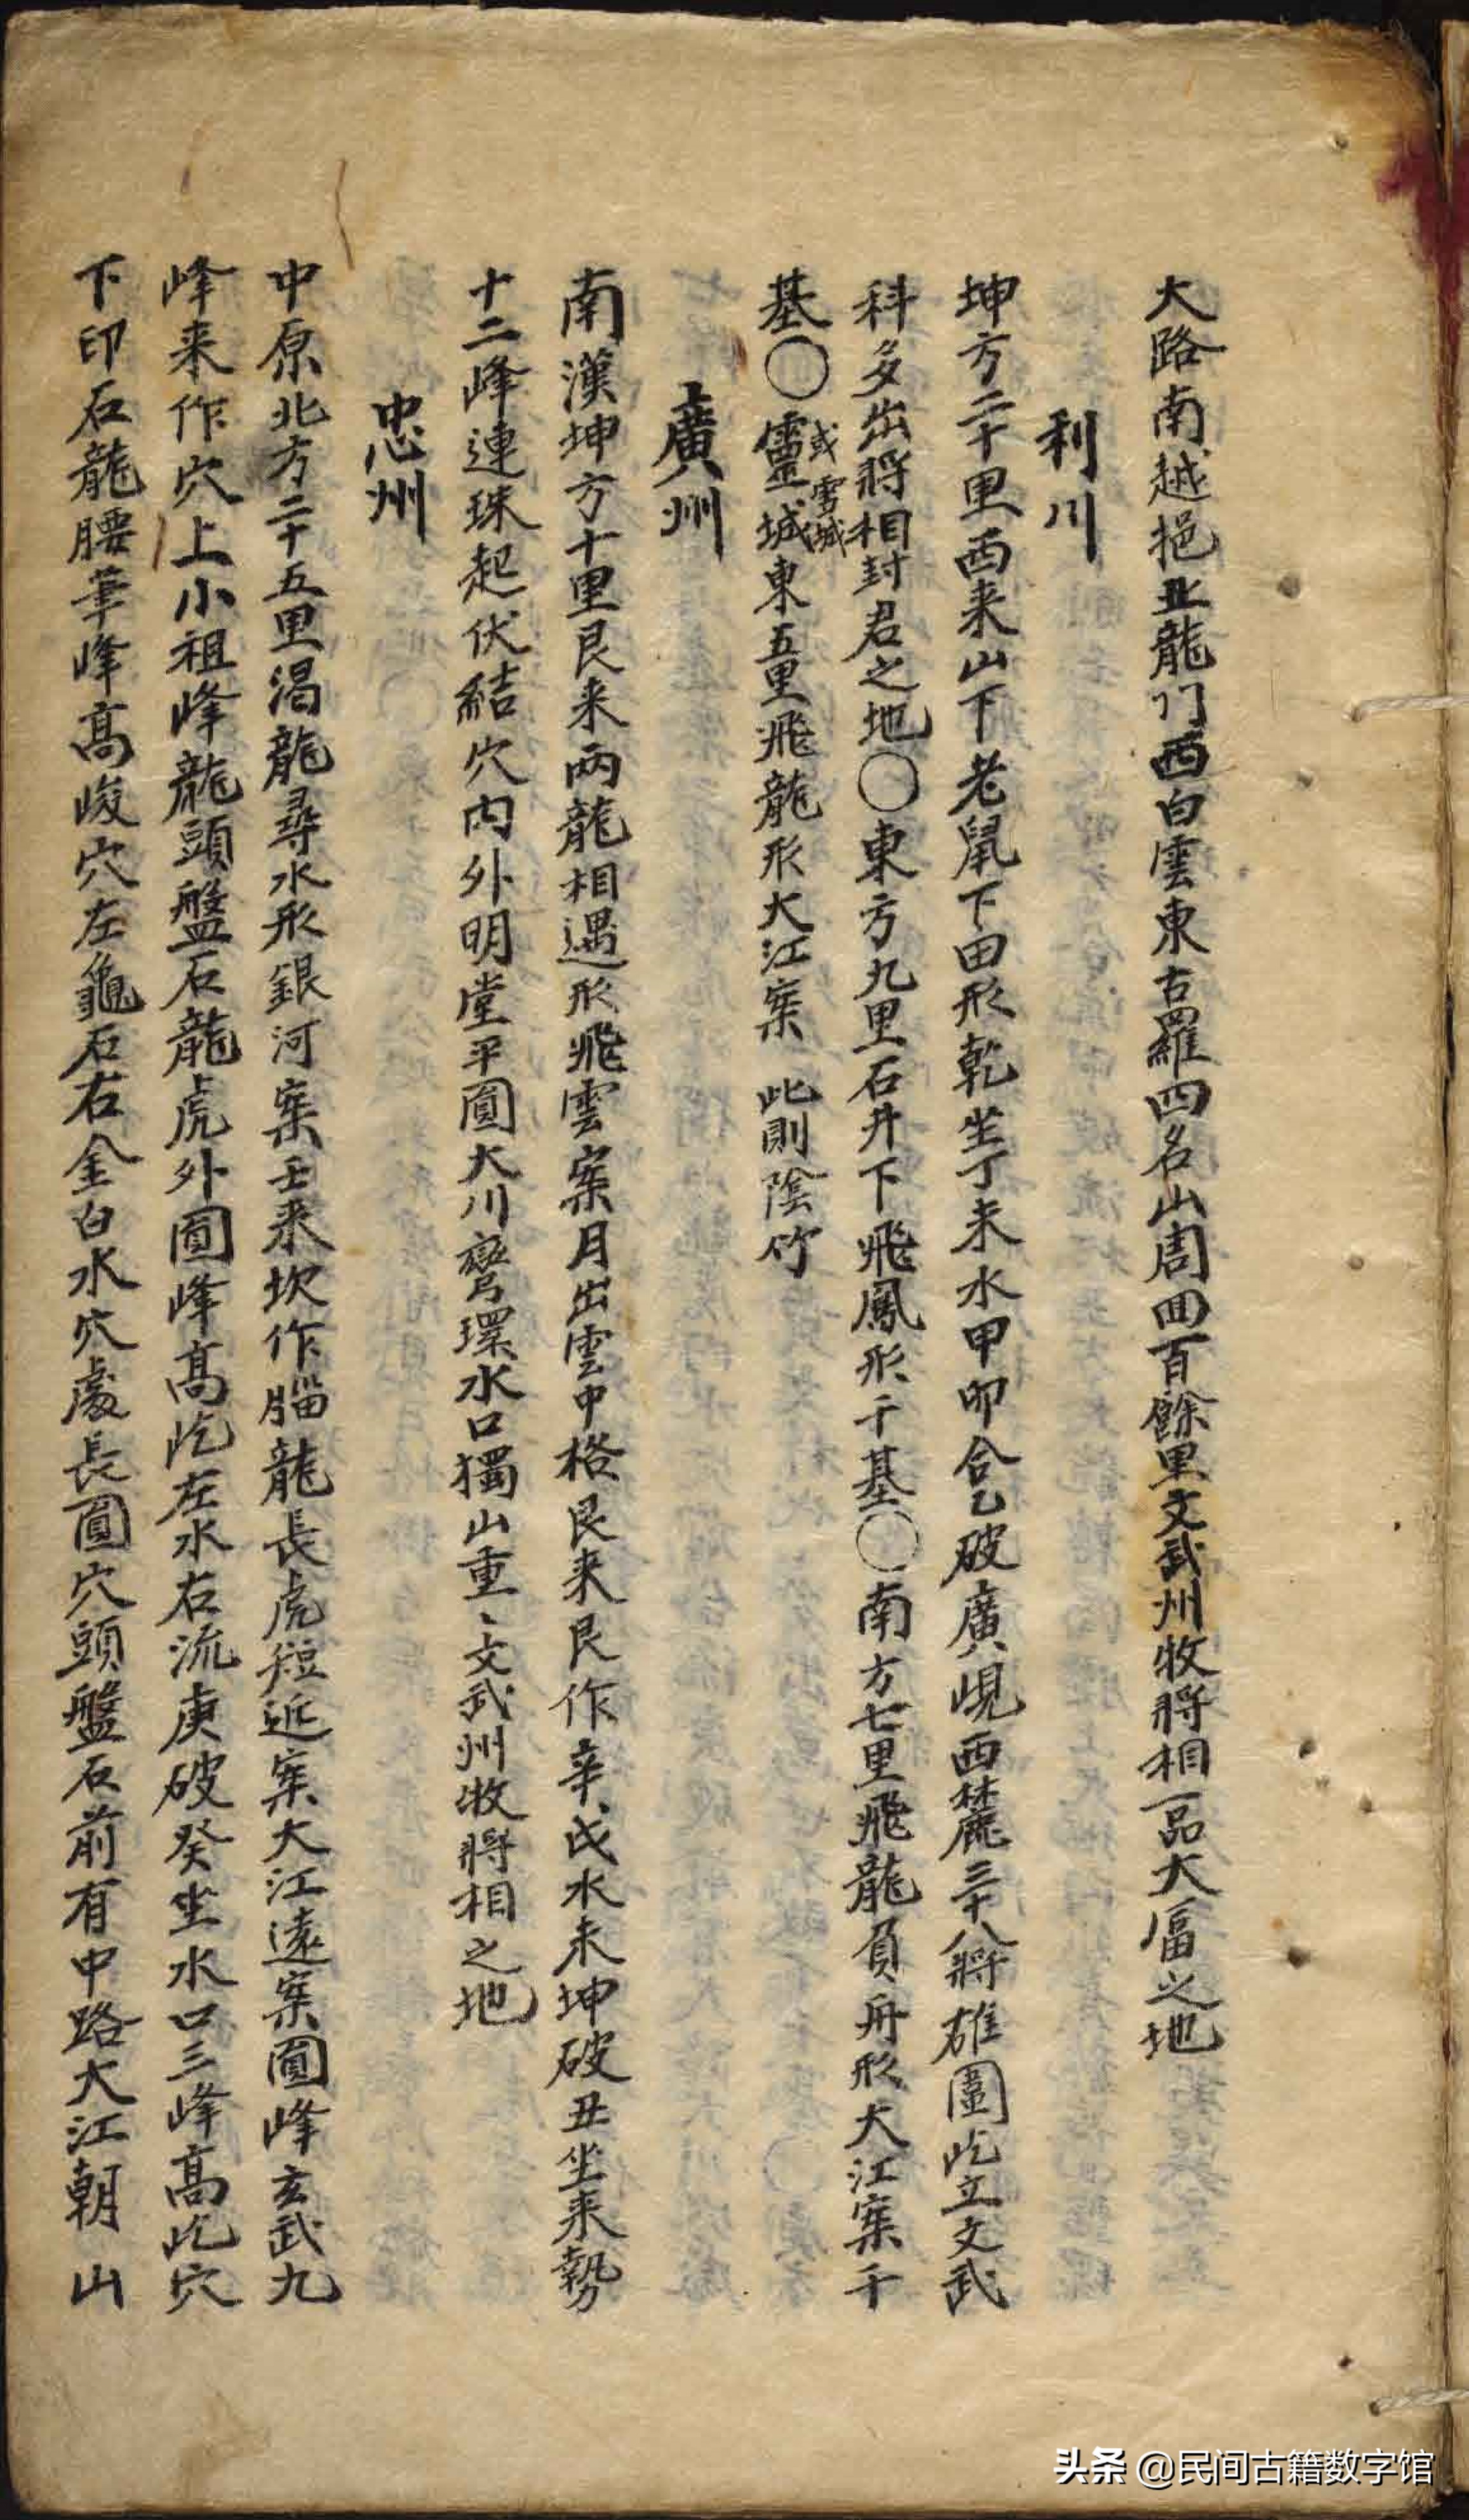 大路南越挹北龍门西白雲東古羅四名山周回百餘里文武州牧將相一品大富之地
利川
坤方二十里西来山下老鼠下田形乾坐丁未水甲卯合乙破廣峴西麓三十八將雄圍屹立文武
科多出將相封君之地〇東方九里石井下飛鳳形千基〇南方七里飛龍負舟形大江案千
基〇靈城東五里飛龍形大江案 此則陰竹
或雪城
廣州
南漢坤方十里艮来兩龍相遇形飛雲案月出雲中格艮来艮作辛戌水未坤破丑坐来勢
十二峰連珠起伏結穴内外明堂平圓大川彎環水口獨山重〻文武州牧將相之地
忠州
中原北方二十五里渴龍尋水形銀河案壬来坎作腦龍長虎短近案大江遠案圓峰玄武九
峰来作穴上小祖峰龍頭盤石龍虎外圓峰高屹左水右流庚破癸坐水口三峰高屹穴
下印石龍腰筆峰高峻穴左龜石右金白水穴處長圓穴頭盤石前有中路大江朝山
头条 @民间古籍数字馆